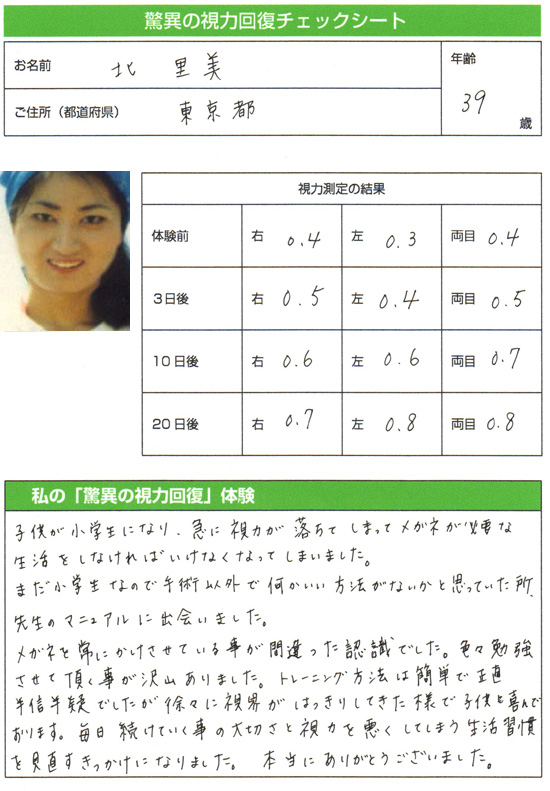 驚異の視力回復チェックシート
お名前 北 里美
年齢 39 歳
ご住所（都道府県） 東京都
視力測定の結果
体験前 右 0.4 左 0.3 両目 0.4
3日後 右 0.5 左 0.4 両目 0.5
10日後 右 0.6 左 0.6 両目 0.7
20日後 右 0.7 左 0.8 両目 0.8
私の「驚異の視力回復」体験
子供が小学生になり、急に視力が落ちてしまってメガネが必要な
生活をしなければいけなくなってしまいました。
まだ小学生なので手術以外で何かいい方法がないかと思っていた所、
先生のマニュアルに出会いました。
メガネを常にかけさせている事が間違った認識でした。色々勉強
させて頂く事が沢山ありました。トレーニング方法は簡単で正直
半信半疑でしたが徐々に視界がはっきりしてきた様で子供と喜んで
おります。毎日続けていく事の大切さと視力を悪くしてしまう生活習慣
を見直すきっかけになりました。 本当にありがとうございました。